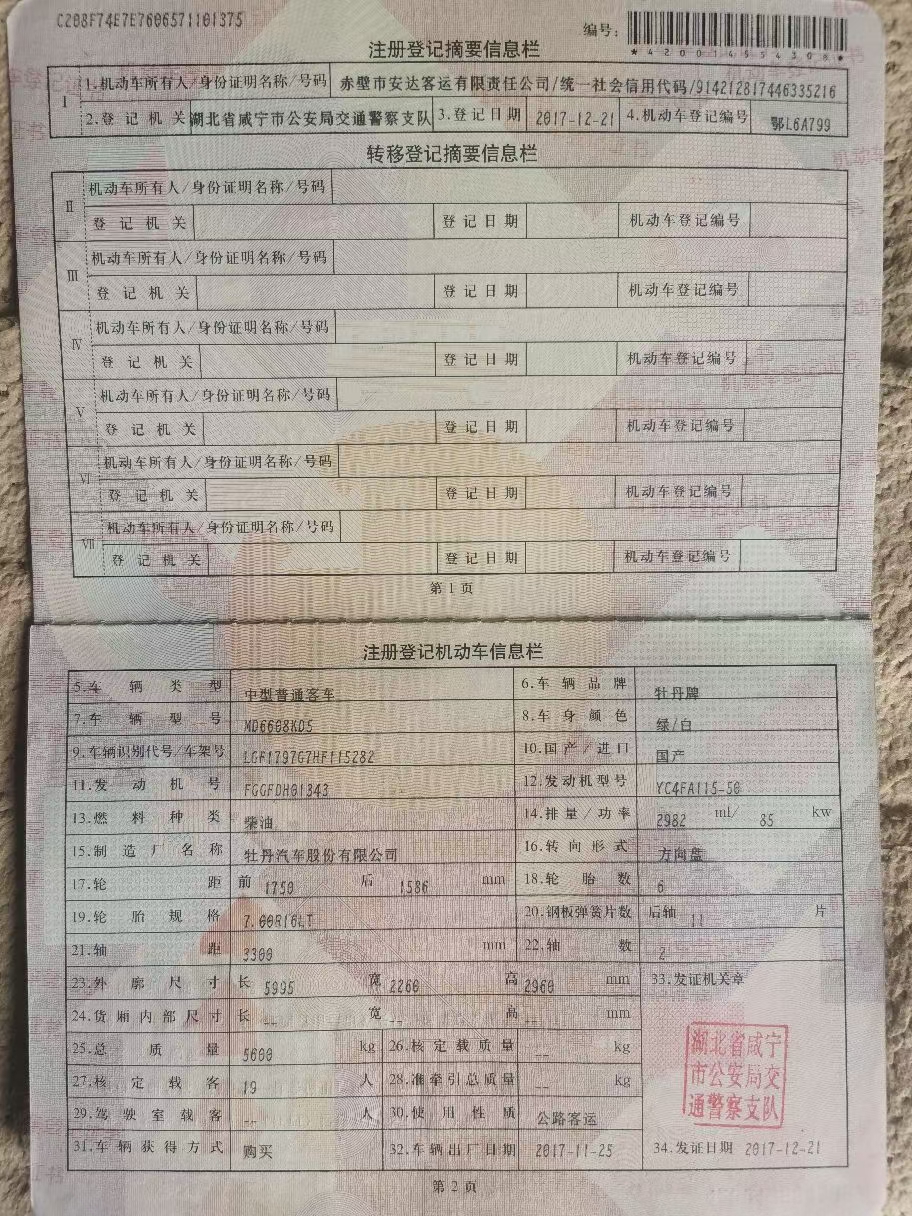 C208F74E7E7606571101375
编号：
*420014554308*
注册登记摘要信息栏
I
1.机动车所有人/身份证明名称/号码 赤壁市安达客运有限责任公司/统一社会信用代码/914212817446335216
2.登记机关 湖北省咸宁市公安局交通警察支队 3.登记日期 2017-12-21 4.机动车登记编号 鄂L6A799
转移登记摘要信息栏
II
机动车所有人/身份证明名称/号码
登记机关 登记日期 机动车登记编号
III
机动车所有人/身份证明名称/号码
登记机关 登记日期 机动车登记编号
IV
机动车所有人/身份证明名称/号码
登记机关 登记日期 机动车登记编号
V
机动车所有人/身份证明名称/号码
登记机关 登记日期 机动车登记编号
VI
机动车所有人/身份证明名称/号码
登记机关 登记日期 机动车登记编号
VII
机动车所有人/身份证明名称/号码
登记机关 登记日期 机动车登记编号
第1页
注册登记机动车信息栏
5.车辆类型 中型普通客车 6.车辆品牌 牡丹牌
7.车辆型号 MD6608KD5 8.车身颜色 绿/白
9.车辆识别代号/车架号 LGF1797G7HF115282 10.国产/进口 国产
11.发动机号 FGGFDH01343 12.发动机型号 YC4FA115-50
13.燃料种类 柴油 14.排量/功率 2982 ml/ 85 kw
15.制造厂名称 牡丹汽车股份有限公司 16.转向形式 方向盘
17.轮距 前 1750 后 1586 mm 18.轮胎数 6
19.轮胎规格 7.00R16LT 20.钢板弹簧片数 后轴 11 片
21.轴距 3300 mm 22.轴数 2
23.外廓尺寸 长 5995 宽 2260 高 2960 mm 33.发证机关章
24.货厢内部尺寸 长 -- 宽 -- 高 -- mm
25.总质量 5600 kg 26.核定载质量 -- kg
27.核定载客 19 人 28.准牵引总质量 -- kg
29.驾驶室载客 -- 人 30.使用性质 公路客运
31.车辆获得方式 购买 32.车辆出厂日期 2017-11-25 34.发证日期 2017-12-21
湖北省咸宁
市公安局交
通警察支队
第2页